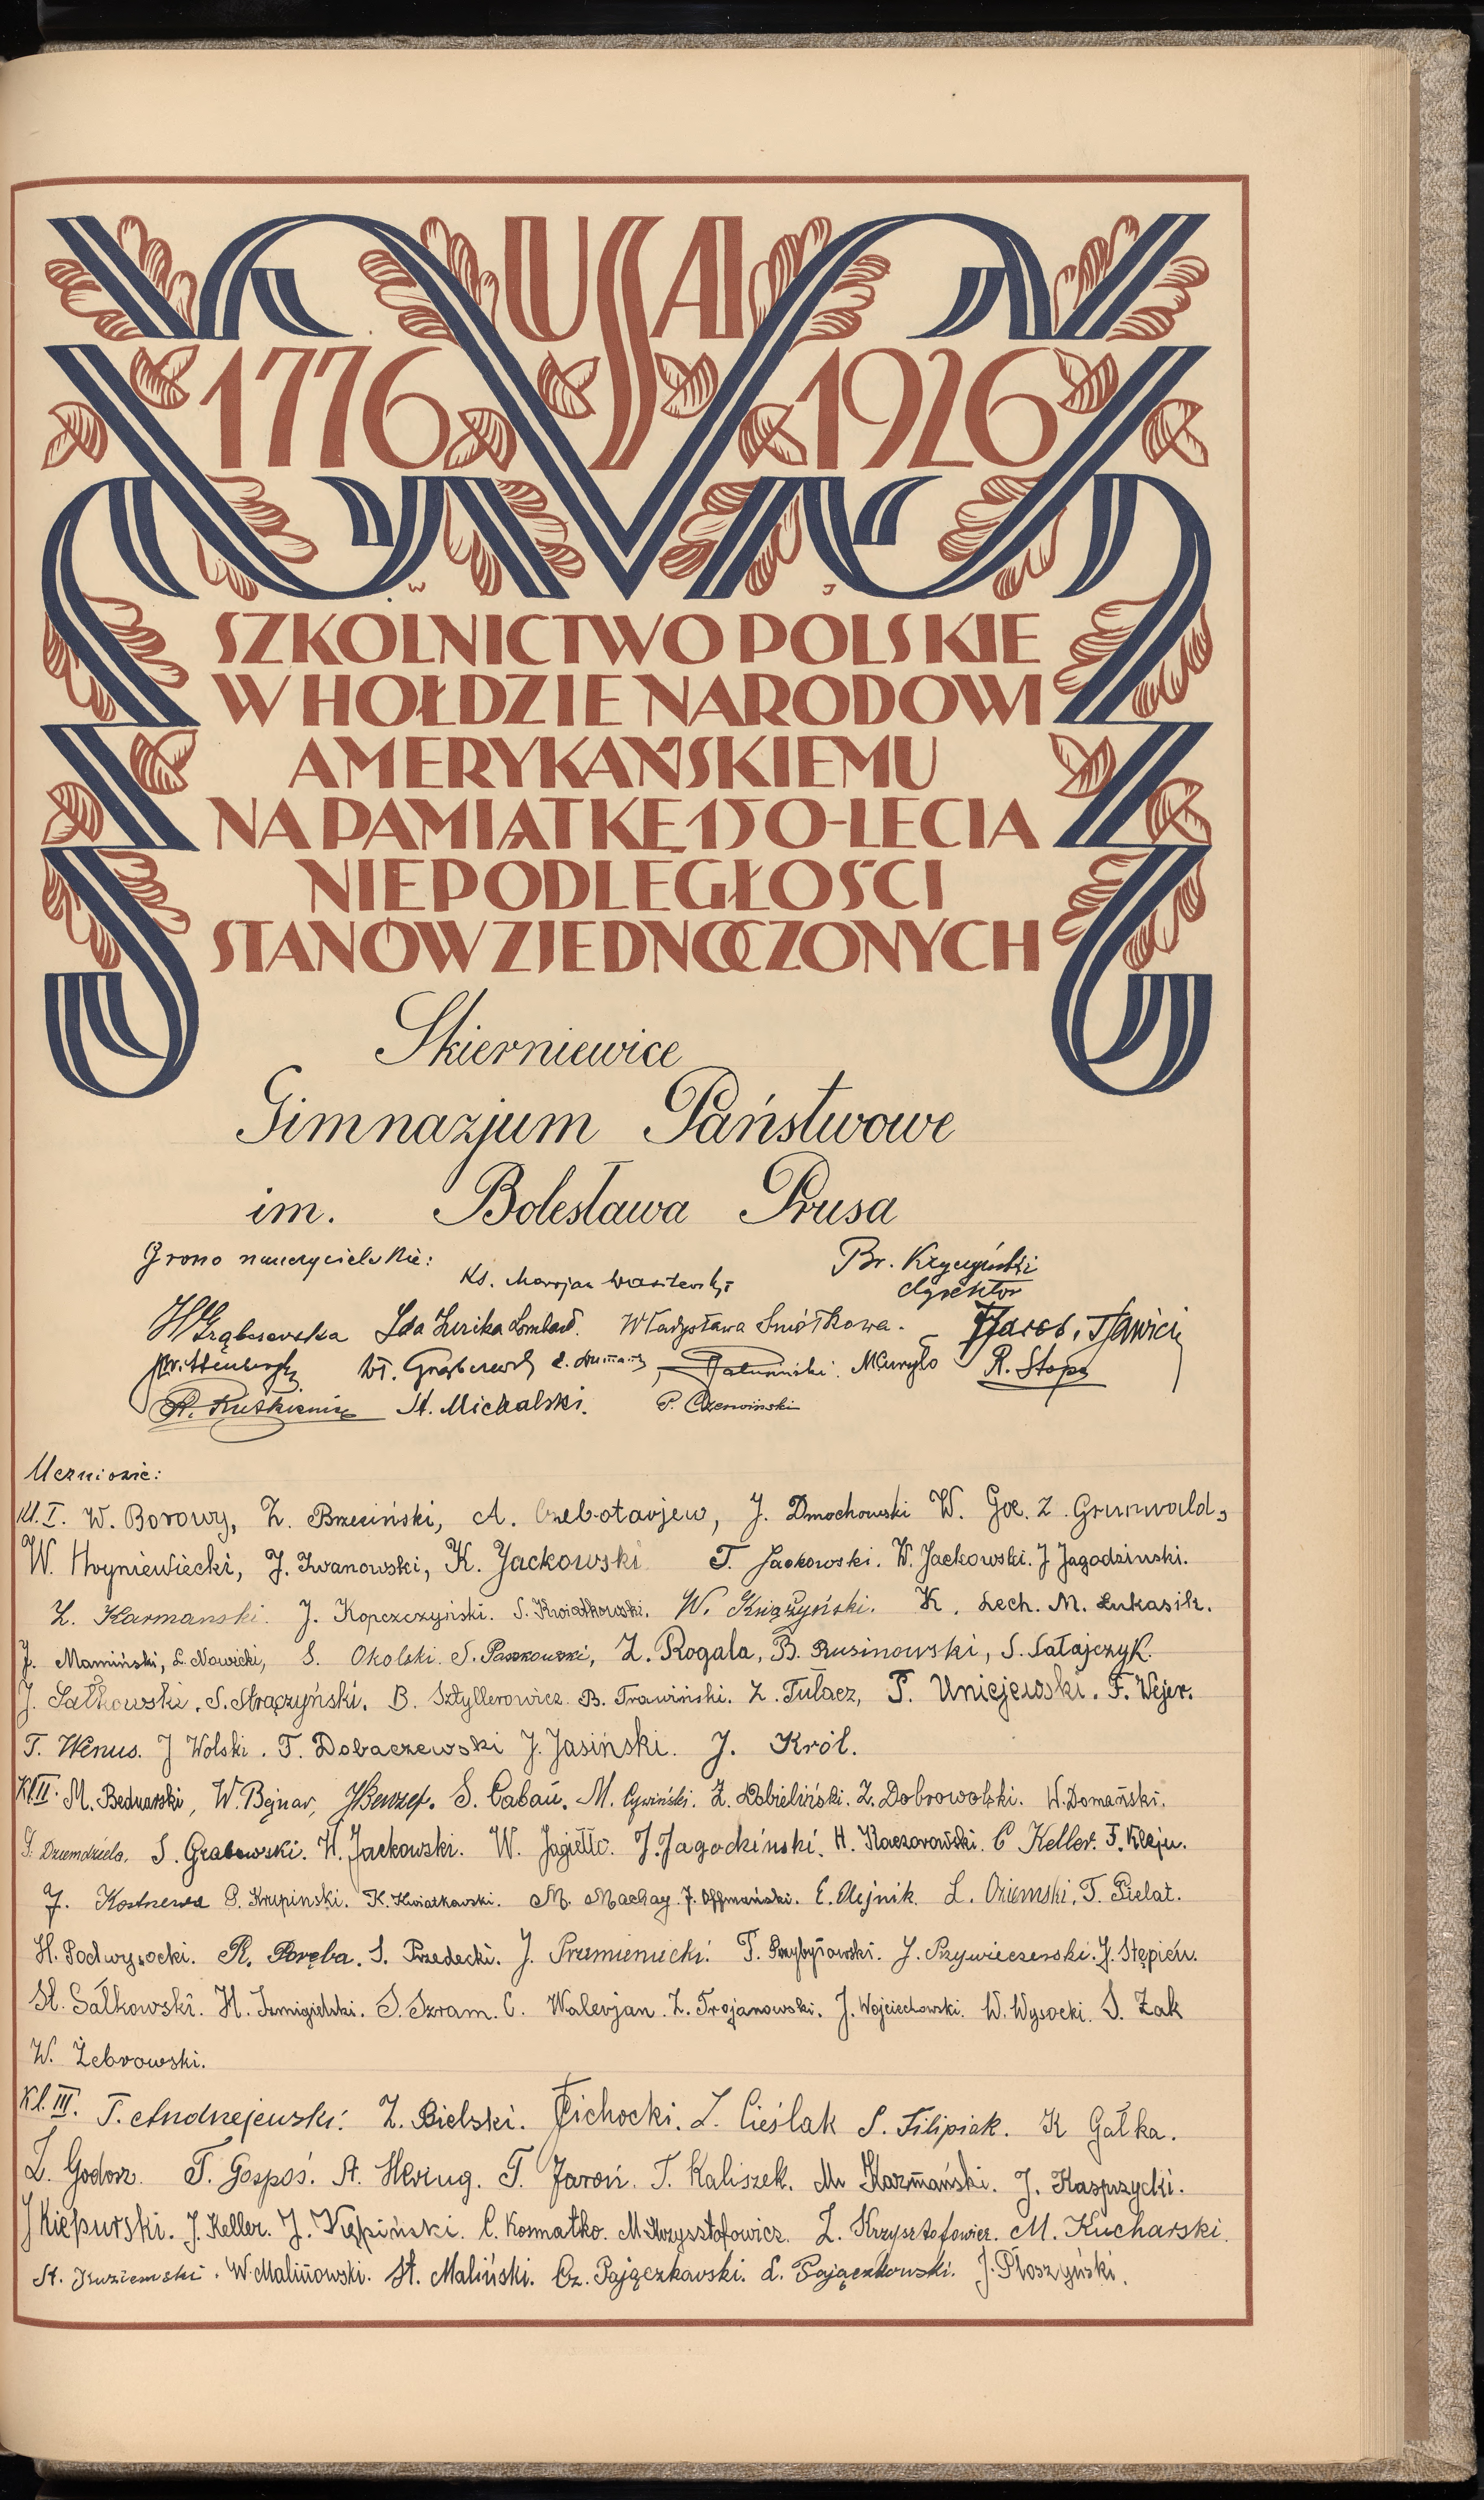 USA
1776 1926
W J
SZKOLNICTWO POLSKIE
W HOŁDZIE NARODOWI
AMERYKAŃSKIEMU
NA PAMIĄTKĘ 150-LECIA
NIEPODLEGŁOŚCI
STANÓW ZJEDNOCZONYCH
Skierniewice
Gimnazjum Państwowe
im. Bolesława Prusa
Grono nauczycielskie: Ks. Marjan Wasilewski Br. Krzyczyński
dyrektor
H Grąbczewska Ida Lurika Lombard. Władysława Smółkowa.
Wł. Grąbczewski Kuryło R. Stopa
St. Michalski. P. Czerwiński
Uczniowie:
Kl. I. W. Borowy, Z. Brzeziński, A. Czebotarjew, J. Dmochowski W. Goc. Z. Grunwald,
W. Hryniewiecki, J. Iwanowski, K. Jackowski T. Jackowski. W. Jackowski. J Jagodziński.
Z. Karmanski. J. Kopczczyński. S. Kwiatkowski. W. Książyński. K. Lech. M. Łukasik.
J. Mamiński, L. Nowicki, S. Okolski. S. Paszkowski, Z. Rogala, B. Rusinowski, S. Sałajczyk.
J. Sałkowski. S. Strączyński. B. Sztyllerowicz. B. Trawiński. Z. Tułacz, T. Uniejewski. F. Wejer.
T. Wenus. J Wolski. T. Dobaczewski J. Jasiński. J. Król.
Kl. II. M. Bednarski, W. Bejnar, S. Cabań. M. Cywiński. Z. Dobieliński. Z. Dobrowolski. W. Domański.
S. Dziemdziela. S. Grabowski. H. Jackowski. W. Jagiełło. J. Jagodziński. H. Kaczorowski. C Keller. F. Kleju.
J. Kostrzewa P. Krupinski. K. Kwiatkowski. M. Machay. J. Offmański. E. Olejnik. L. Oziemski. T. Pielat.
H. Podwysocki. R. Poręba. S. Przedecki. J. Przemieniecki. T. Przybyłowski. J. Przywieczerski. J. Stępień.
St. Sałkowski. H. Szmigielski. S. Szram. C. Walerjan. Z. Trojanowski. J. Wojciechowski. W. Wysocki. S. Żak
W. Żebrowski.
Kl. III. T. Andrzejewski. Z. Bielski. T Cichocki. Z. Cieślak S. Filipiak. K Gałka.
Z. Godosz. T. Gospoś. A. Hering. T. Jaroń. T. Kaliszek. M Karmański. J. Kasprzycki.
J Kiepurski. J. Keller. J. Kępiński. C. Kosmatko. M. Krzysztofowicz. Z. Krzysztofowicz. M. Kucharski.
St. Kuziemski. W. Malinowski. St. Maliński. Cz. Pajączkowski. L. Pajączkowski. J. Płoszyński.